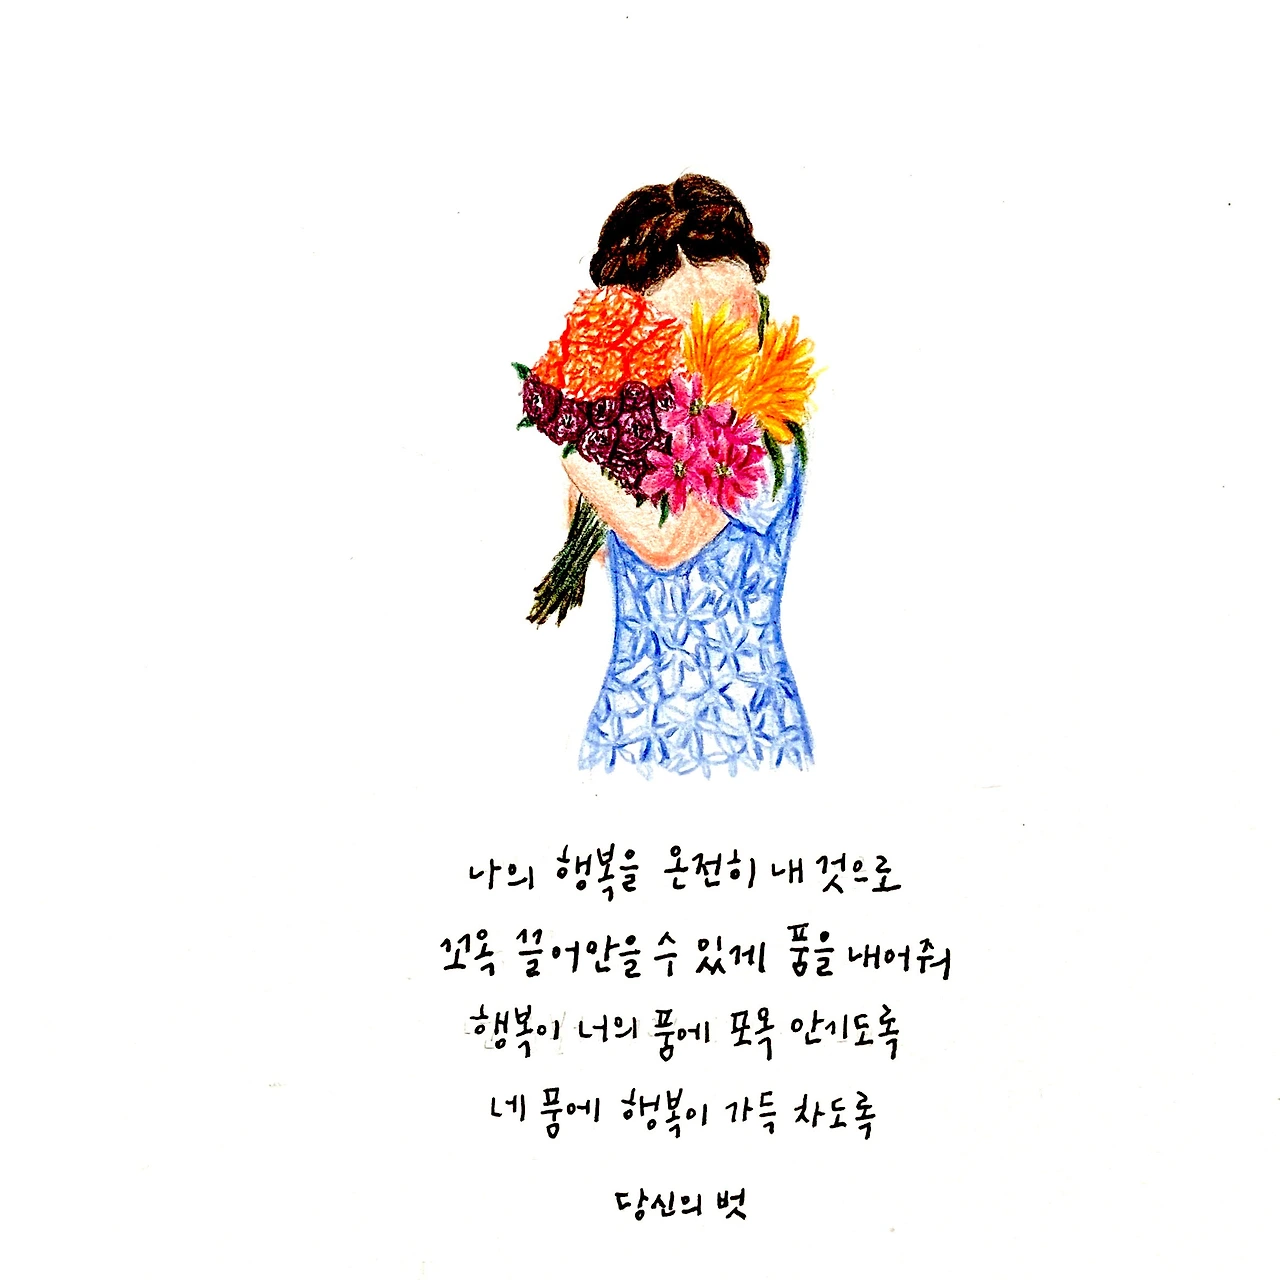 나의 행복을 온전히 내 것으로
꼬옥 끌어안을 수 있게 품을 내어줘
행복이 너의 품에 포옥 안기도록
네 품에 행복이 가득 차도록
당신의 벗